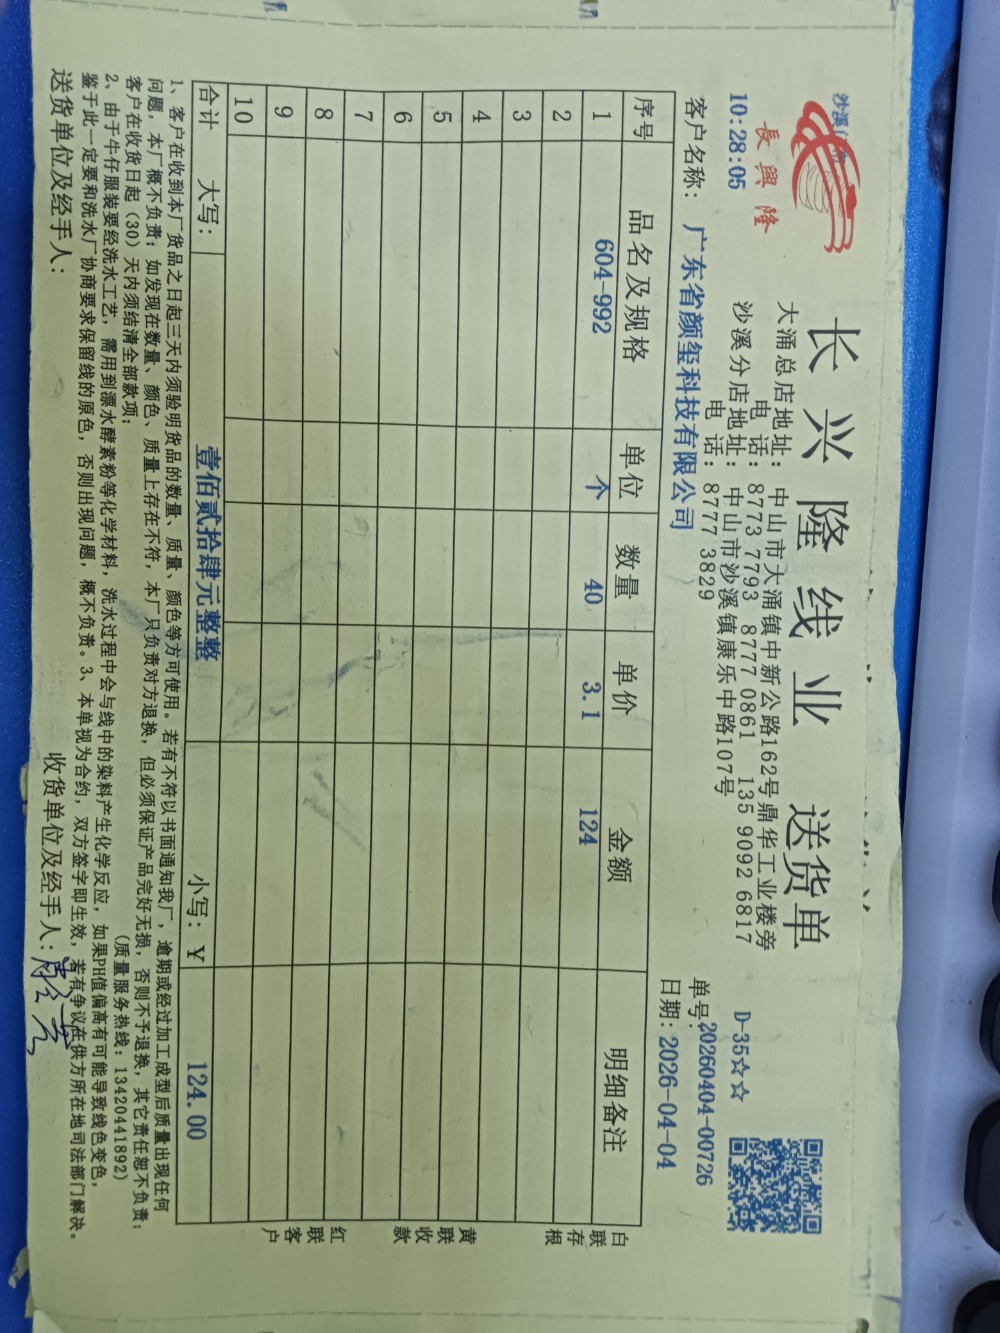 沙溪
長興隆
10:28:05
长兴隆线业 送货单
大涌总店地址: 中山市大涌镇中新公路162号鼎华工业楼旁
电 话: 8773 7793 8777 0861 135 9092 6817
沙溪分店地址: 中山市沙溪镇康乐中路107号
电 话: 8777 3829
D-35☆☆
单号: 20260404-00726
客户名称: 广东省颜玺科技有限公司
日期: 2026-04-04
序号 品名及规格 单位 数量 单价 金额 明细备注
1 604-992 个 40 3.1 124
2
3
4
5
6
7
8
9
10
合计 大写: 壹佰贰拾肆元整整 小写: ¥ 124.00
白联存根
黄联收款
红联客户
1、客户在收到本厂货品之日起三天内须验明货品的数量、质量、颜色等方可使用。若有不符以书面通知我厂，逾期或经过加工成型后质量出现任何
问题，本厂概不负责；如发现在数量、颜色、质量上存在不符，本厂只负责对方退换，但必须保证产品完好无损，否则不予退换，其它责任恕不负责；
客户在收货日起（30）天内须结清全部款项； (质量服务热线: 13420441892)
2、由于牛仔服装要经洗水工艺，需用到漂水酵素粉等化学材料，洗水过程中会与线中的染料产生化学反应，如果PH值偏高有可能导致线色变色，
鉴于此一定要和洗水厂协商要求保留线的原色，否则出现问题，概不负责。3、本单视为合约，双方签字即生效，若有争议在供方所在地司法部门解决。
送货单位及经手人: 收货单位及经手人: